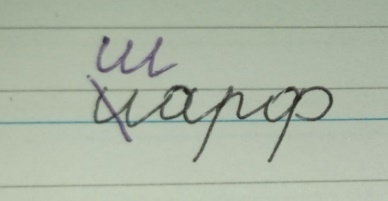 шарф